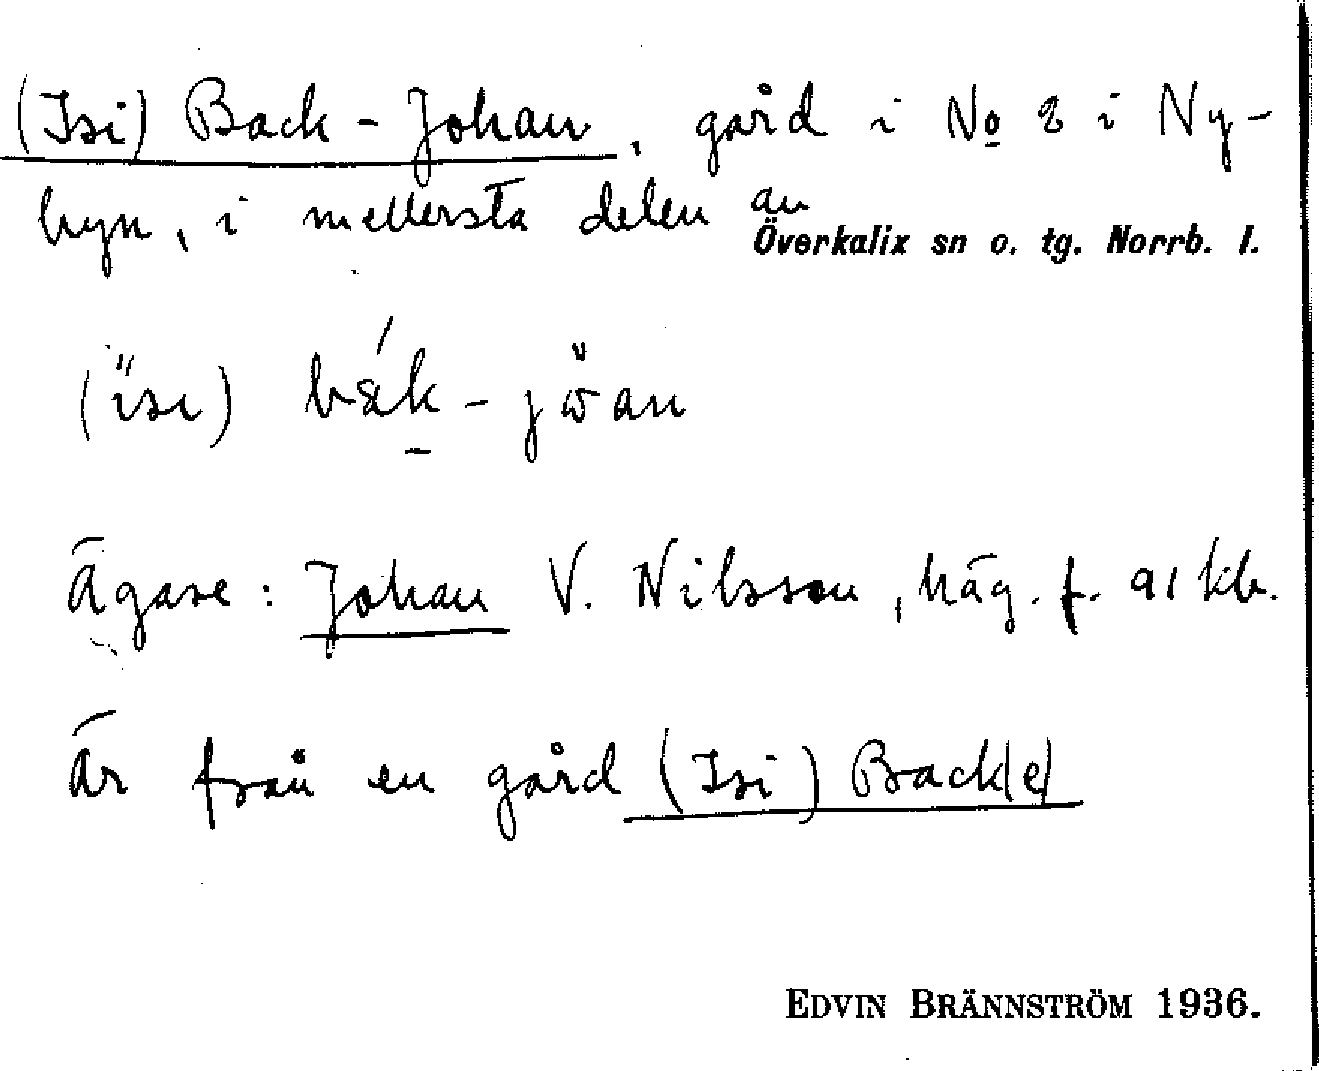 (Isi) Back-Johan, gård i No 2 i Ny-
byn, i mellersta delen av
Överkalix sn o. tg. Norrb. l.
(ı̈sı) bák-jω̈an
Ägare: Johan V. Nilsson, häg. f. 91 kb.
Är från en gård (Isi) Back(e)
EDVIN BRÄNNSTRÖM 1936.